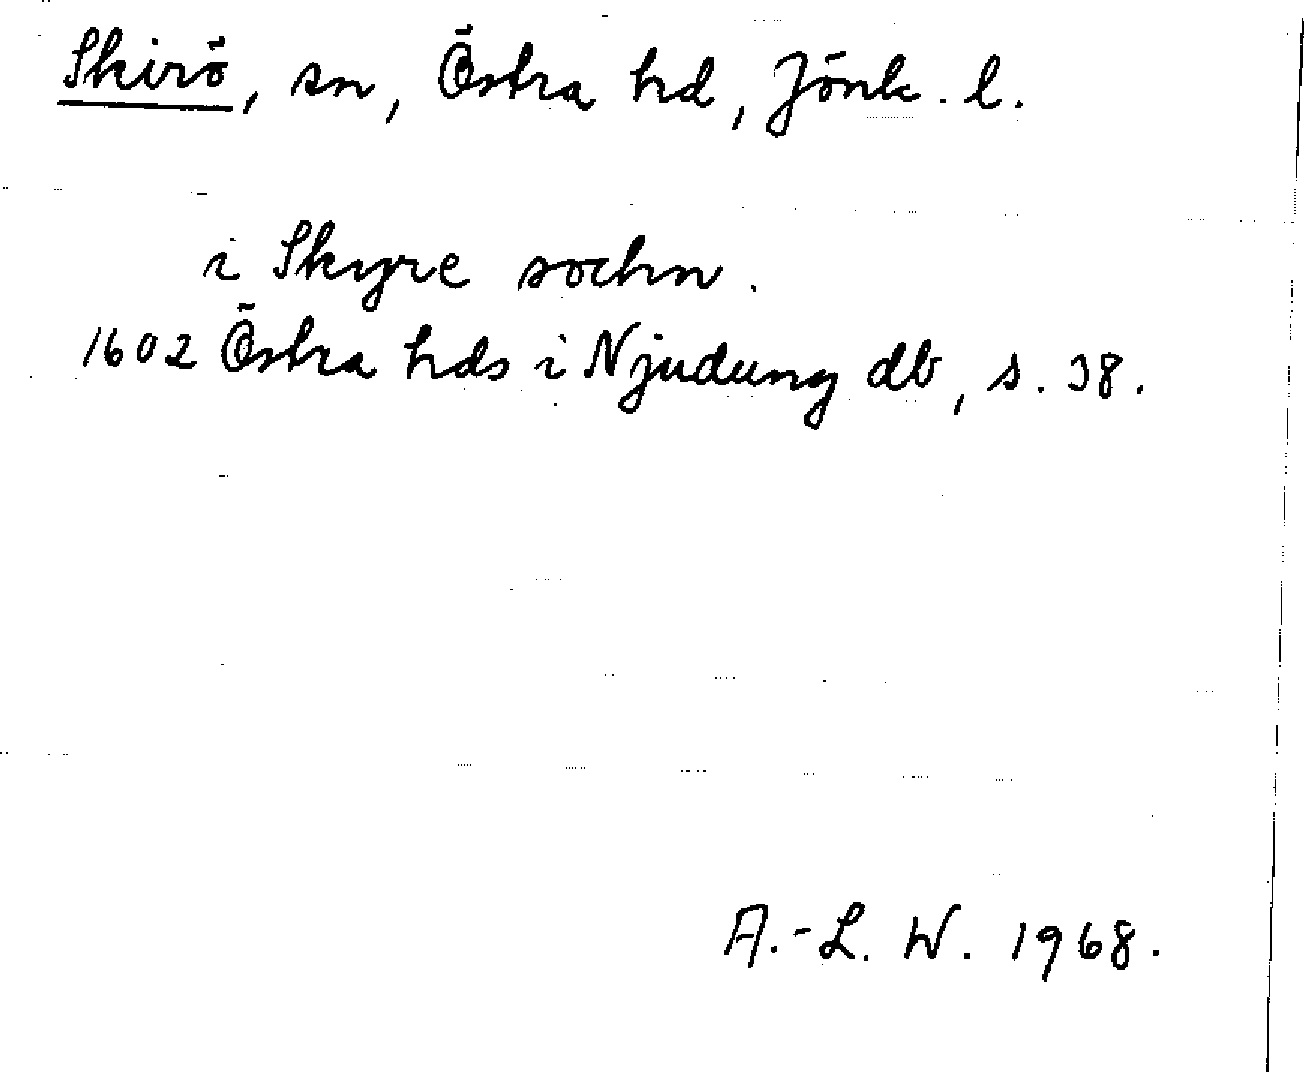 Skirö, sn, Östra hd, Jönk. l.
i Skyre sochn.
1602 Östra hds i Njudung db, s. 38.
A.-L. W. 1968.